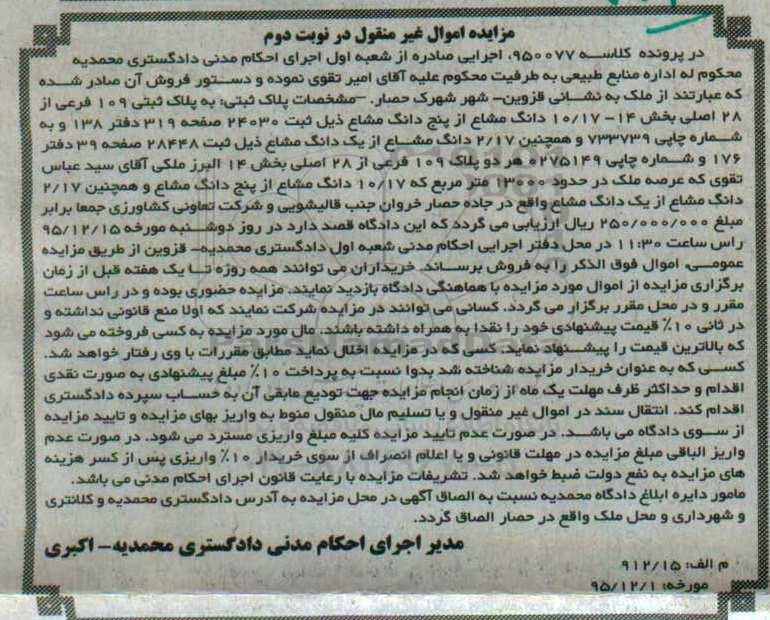 مزایده اموال غیر منقول در نوبت دوم
در پرونده کلاسه ۹۵۰۰۷۷، اجرایی صادره از شعبه اول اجرای احکام مدنی دادگستری محمدیه
محکوم له اداره منابع طبیعی به طرفیت محکوم علیه آقای امیر تقوی نموده و دستور فروش آن صادر شده
که عبارتند از ملک به نشانی قزوین- شهر شهرک حصار. -مشخصات پلاک ثبتی: به پلاک ثبتی ۱۰۹ فرعی از
۲۸ اصلی بخش ۱۴- ۱۰/۱۷ دانگ مشاع از پنج دانگ مشاع ذیل ثبت ۲۴۰۳۰ صفحه ۳۱۹ دفتر ۱۳۸ و به
شماره چاپی ۷۳۳۷۳۹ و همچنین ۲/۱۷ دانگ مشاع از یک دانگ مشاع ذیل ثبت ۲۸۴۴۸ صفحه ۳۹ دفتر
۱۷۶ و شماره چاپی ۰۲۷۵۱۴۹ هر دو پلاک ۱۰۹ فرعی از ۲۸ اصلی بخش ۱۴ البرز ملکی آقای سید عباس
تقوی که عرصه ملک در حدود ۱۳۰۰۰ متر مربع که ۱۰/۱۷ دانگ مشاع از پنج دانگ مشاع و همچنین ۲/۱۷
دانگ مشاع از یک دانگ مشاع واقع در جاده حصار خروان جنب قالیشویی و شرکت تعاونی کشاورزی جمعا برابر
مبلغ ۲۵۰/۰۰۰/۰۰۰ ریال ارزیابی می گردد که این دادگاه قصد دارد در روز دوشنبه مورخه ۹۵/۱۲/۱۵
راس ساعت ۱۱:۳۰ در محل دفتر اجرایی احکام مدنی شعبه اول دادگستری محمدیه- قزوین از طریق مزایده
عمومی، اموال فوق الذکر را به فروش برساند. خریداران می توانند همه روزه تا یک هفته قبل از زمان
برگزاری مزایده از اموال مورد مزایده با هماهنگی دادگاه بازدید نمایند. مزایده حضوری بوده و در راس ساعت
مقرر و در محل مقرر برگزار می گردد. کسانی می توانند در مزایده شرکت نمایند که اولا منع قانونی نداشته و
در ثانی ۱۰٪ قیمت پیشنهادی خود را نقدا به همراه داشته باشند. مال مورد مزایده به کسی فروخته می شود
که بالاترین قیمت را پیشنهاد نماید. کسی که در مزایده اخلال نماید مطابق مقررات با وی رفتار خواهد شد.
کسی که به عنوان خریدار مزایده شناخته شد بدوا نسبت به پرداخت ۱۰٪ مبلغ پیشنهادی به صورت نقدی
اقدام و حداکثر ظرف مهلت یک ماه از زمان انجام مزایده جهت تودیع مابقی آن به حساب سپرده دادگستری
اقدام کند. انتقال سند در اموال غیر منقول و یا تسلیم مال منقول منوط به واریز بهای مزایده و تایید مزایده
از سوی دادگاه می باشد. در صورت عدم تایید مزایده کلیه مبلغ واریزی مسترد می شود. در صورت عدم
واریز الباقی مبلغ مزایده در مهلت قانونی و یا اعلام انصراف از سوی خریدار ۱۰٪ واریزی پس از کسر هزینه
های مزایده به نفع دولت ضبط خواهد شد. تشریفات مزایده با رعایت قانون اجرای احکام مدنی می باشد.
مامور دایره ابلاغ دادگاه محمدیه نسبت به الصاق آگهی در محل مزایده به آدرس دادگستری محمدیه و کلانتری
و شهرداری و محل ملک واقع در حصار الصاق گردد.
مدیر اجرای احکام مدنی دادگستری محمدیه- اکبری
م الف: ۹۱۲/۱۵
مورخه: ۹۵/۱۲/۱